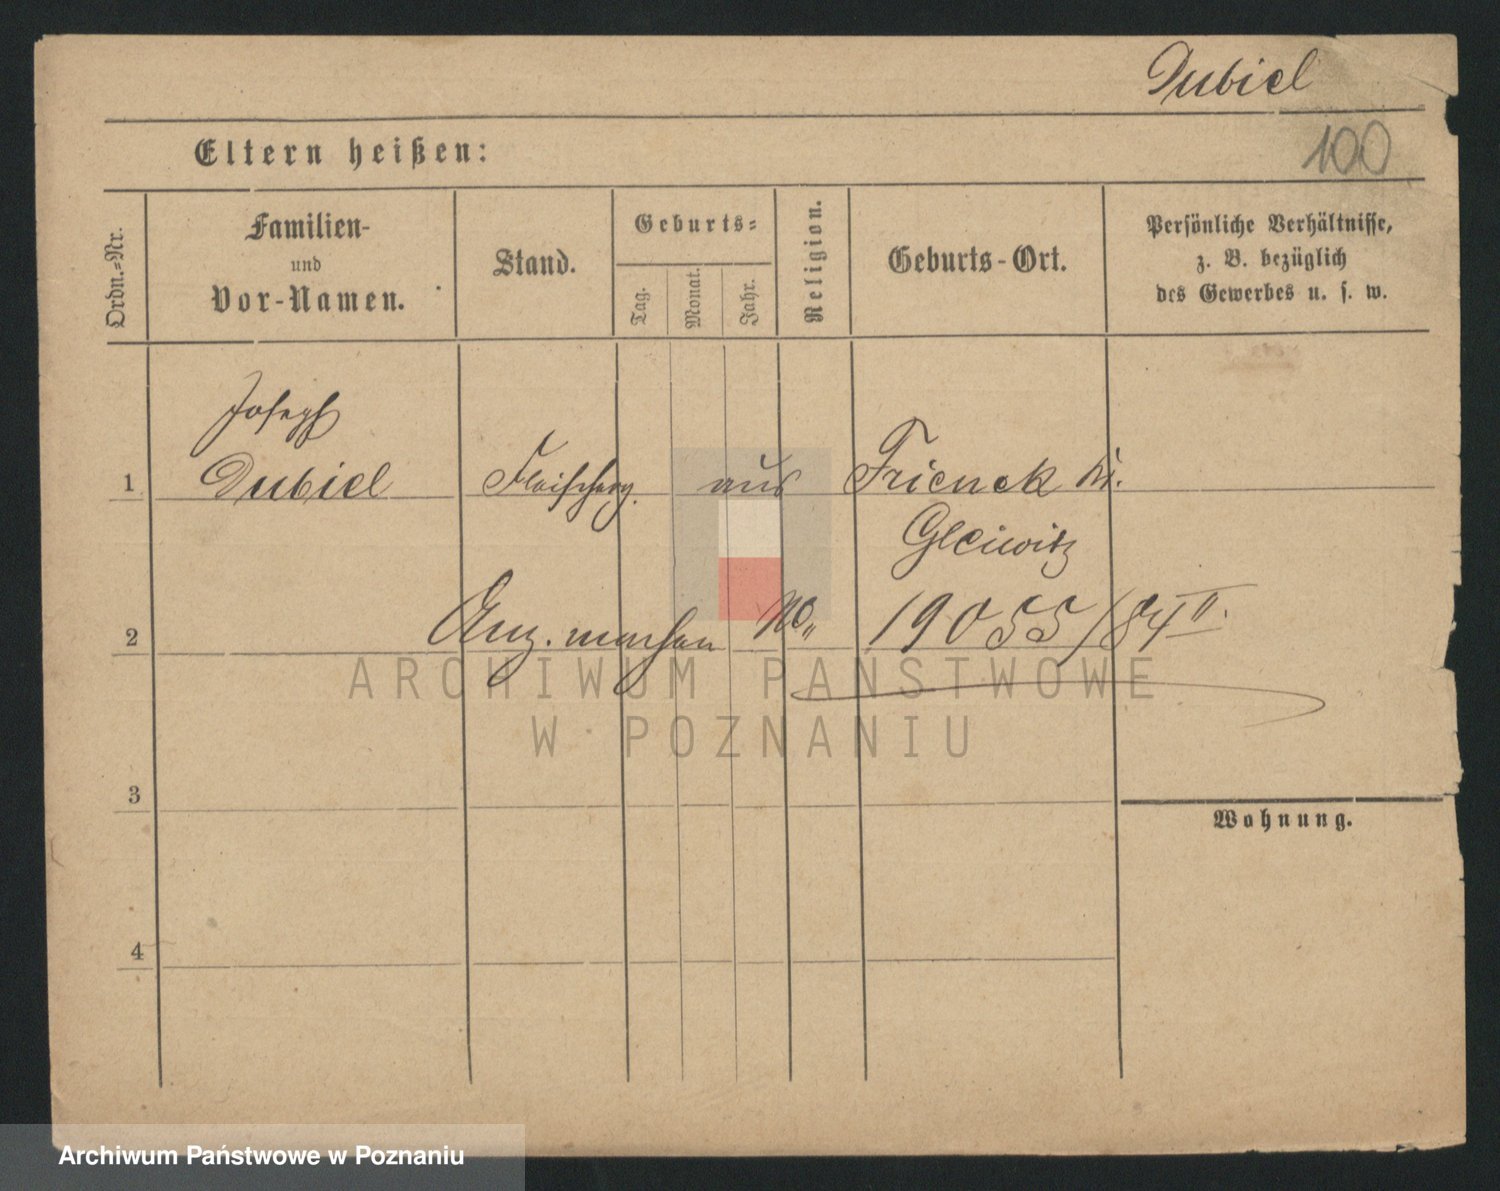 Dubiel
100
Eltern heißen:
Ordn.=Nr.
Familien-
und
Vor-Namen.
Stand.
Geburts=
Tag.
Monat.
Jahr.
Religion.
Geburts-Ort.
Persönliche Verhältnisse,
z. B. bezüglich
des Gewerbes u. s. w.
Joseph
1 Dubiel Fleischerg. aus Trienek Kr.
Gleiwitz
2 Anz. machen No 19055/84 II
ARCHIWUM PAŃSTWOWE
W POZNANIU
3
Wohnung.
4
Archiwum Państwowe w Poznaniu